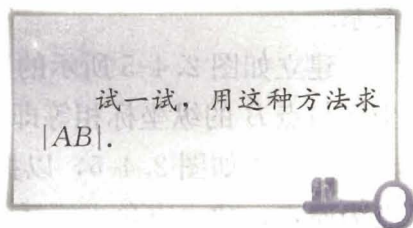 试一试，用这种方法求
|AB|.